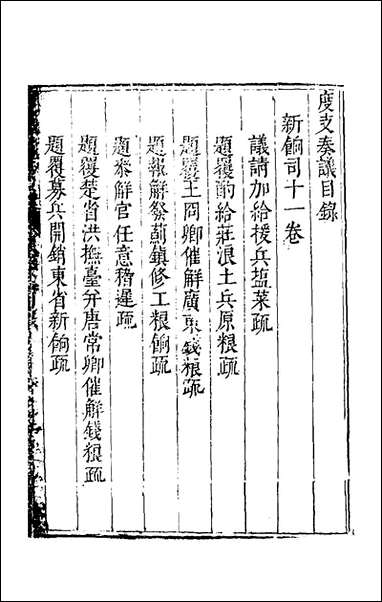 度支奏議目録
新餉司十一卷
議請加給援兵塩菜疏
題覆酌給莊浪土兵原粮疏
題覆王冏卿催觧廣東錢粮疏
題報觧發薊鎮修工粮餉疏
題叅觧官任意稽遲疏
題覆楚省洪撫臺弁唐常卿催觧錢粮疏
題覆募兵開銷東省新餉疏